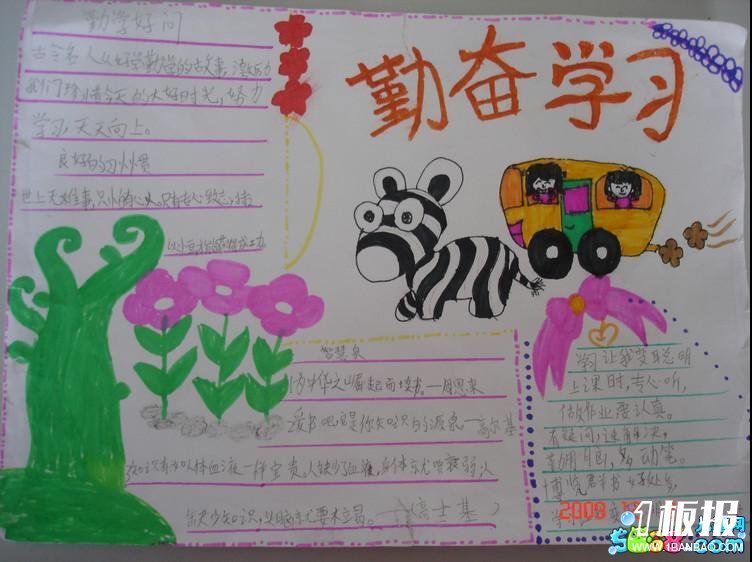 勤奋学习
勤学好问
古今名人从好学勤学的古故事,激励
我们珍惜今天的大好时光,努力
学习,天天向上。
良好的习惯
世上无难事,只怕有心人,只有专心致志
智慧泉
为中华之崛起而读书。—周恩来
爱书吧,它是你知识的源泉—高尔基
知识有如人体血液一样宝贵。人缺少了血液,身体就要衰弱,人
缺少知识,头脑就要枯竭。(高士其)
学习让我变聪明
上课时,专心听,
做作业要认真。
有疑问,速解决,
勤用脑,多动笔。
博览群书好处多
2009
1板报
WWW.1BANBAO.COM